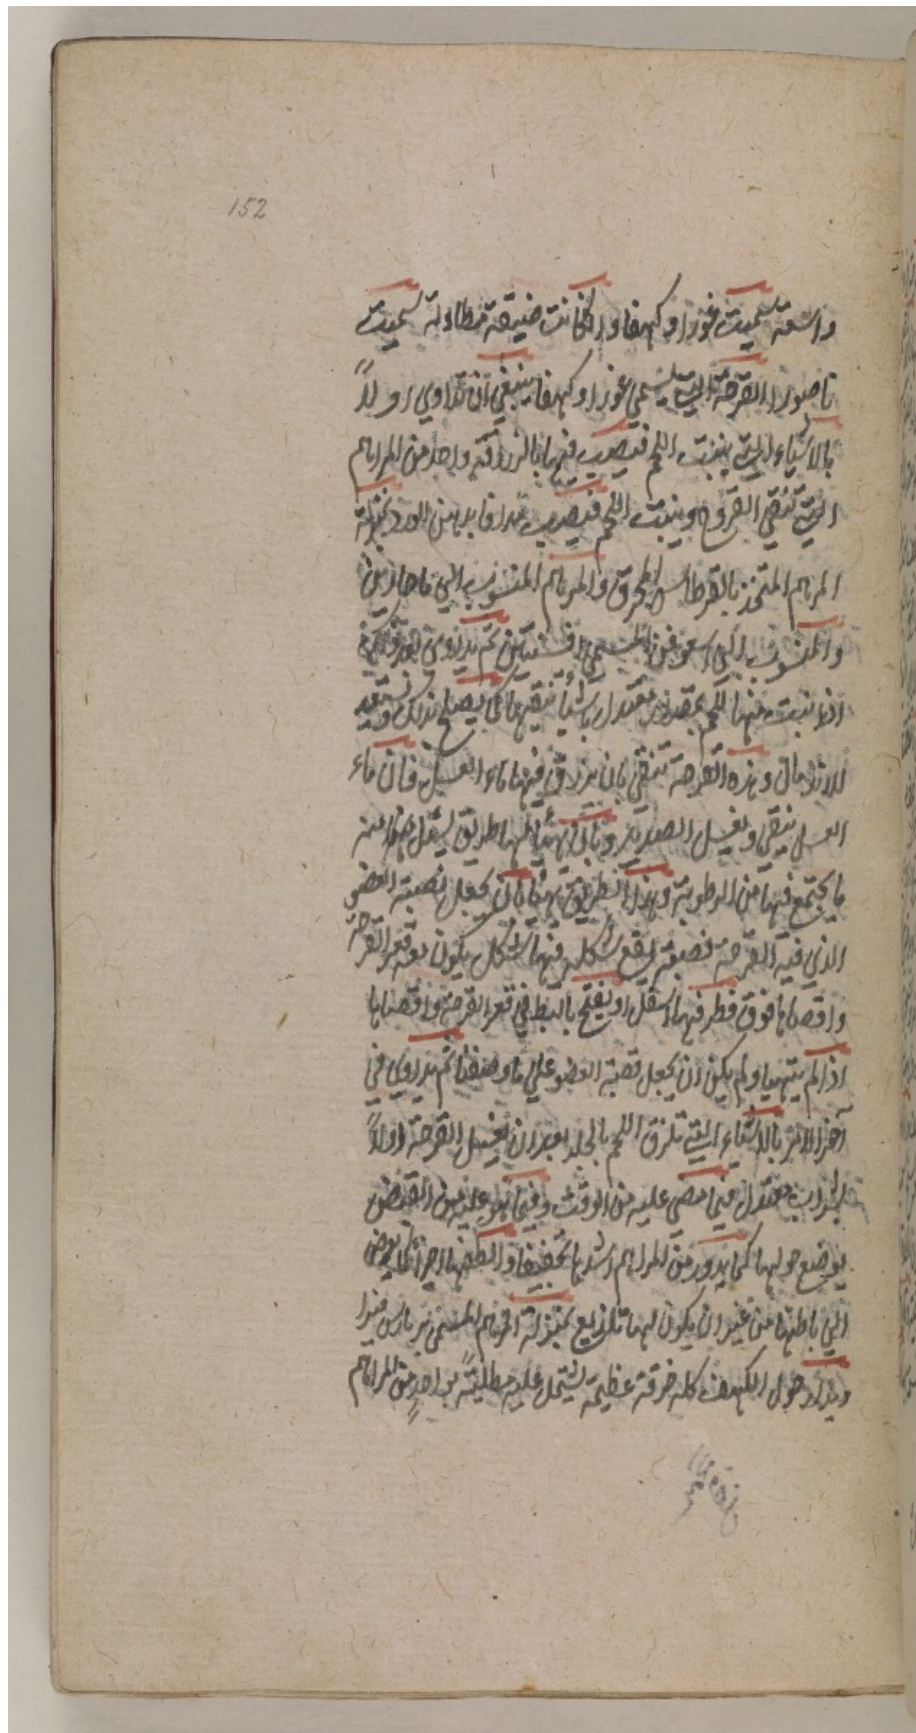 152
واسعة سميت غورا وكهفا وان كانت ضيقة متطاولة سميت
ناصورا القرحة التي تسمي غورا وكهفا ينبغي ان تداوي اولاً
بالاشياء التي ينبت اللحم فيصب فيها بالزراقه واحد من المراهم
التي تنقي القروح وينبت اللحم فيصب مدافا بدهن الورد بمنزلة
المرهم المتخذ بالقرطاس المحرق والمرهم المنسوب الي ماحارين
والمنسوب الي المسمي ثم يداوي
اذا نبت فيها اللحم بمقدار معتدل باشيأ تنقيها كي يصلح بذلك ويستعد
للاندمال وهذه القرحة تنقي بان يزرق فيها ماء العسل فان ماء
العسل ينقي ويغسل الصديد وبان يهيأ لها طريق يسيل منه
ما يجتمع فيها من الرطوبة وهذا الطريق يهيأ بان يجعل نصبة العضو
الذي فيه القرحة نصبة يقع شكله فيها شكل يكون معه قعر القرحة
واقصاها فوق فطرفها اسفل او يفتح بالبط في قعر القرحة واقصاها
اذا لم يتهيا ولم يكن ان يجعل نصبة العضو علي ما وصفنا ثم يداوي في
آخر الامر بالاشياء التي تلزق اللحم بالجلد بعد ان يغسل القرحة اولاً
بشراب معتدل فيما مضي عليه من الوقت وفيما هو عليه من القبض
يوضع حولها كما يدور من المراهم اشدها تجفيفا والطفها اجزأ يغوص
الي باطنها من غير ان يكون لها تلذيع بمنزلة المرهم المسمي بربارس فيدا
ويدار حول الكهف كله خرقة عظيمة يشتمل عليه مطليةً بواحدٍ من المراهم